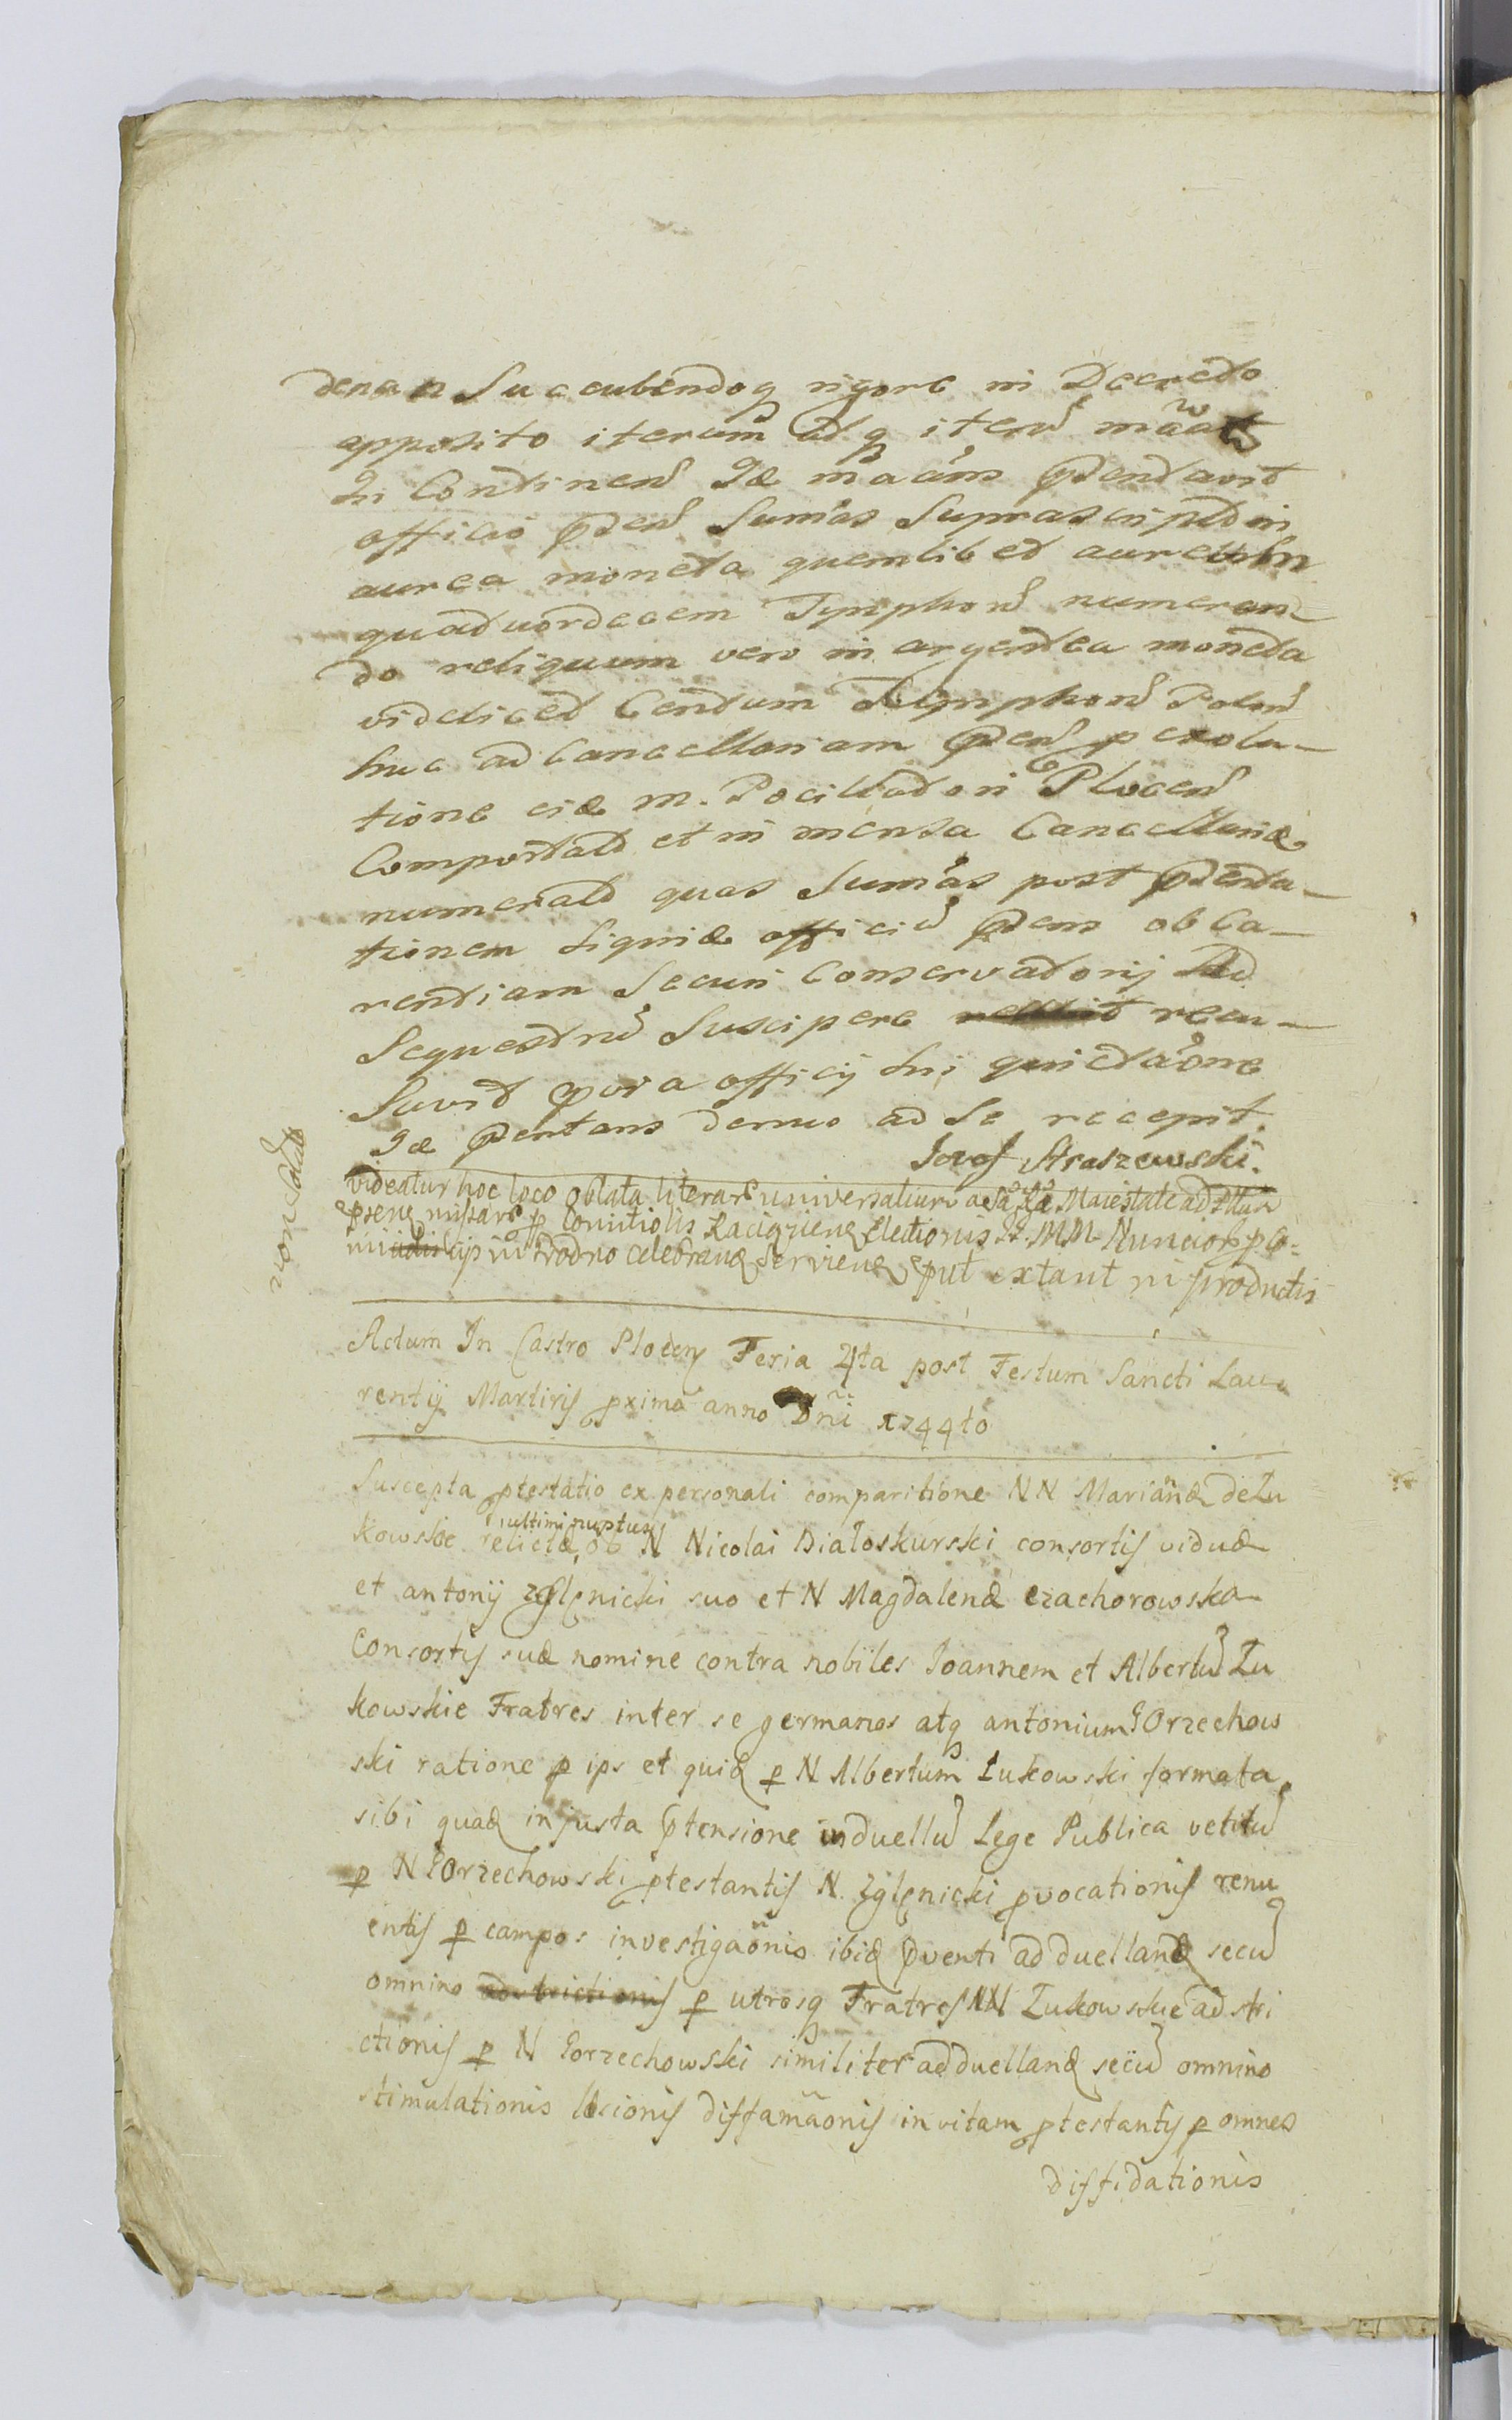 Succubendoq rigore in Decreto
apposito iterum adq iteru
In Continen Idē Pdentavit
officio Pden Sumas Suprascriptd in
aurea moneta quemlibet
quatuordecem Tymphon numeran-
do reliquum vero in argentea moneta
videlicet Centum Tymphon Polon
huc ad Cancellariam Pden p exolu-
tione eidē M. Pocillatori Plocen
Comportatd et in mensa Cancellariæ
numeratd quas Sumas post Pdenta-
tionem officiu Pdens ob Ca-
rentiam Securi Conservatorij Ad
Sequestru Suscipere recu-
Suvit officij Sui quietaōne
Idē Pdentans denuo ad Se recepit.
Straszewski.
non
videatur hoc loco oblata literar universalium a Sa Ra Maiestate ad
Comitiolis Raciązien Electionis MM. Nuncior p Co-
in Grodno celebran servien put extant in productis
Actum In Castro Plocen Feria 4ta post Festum Sancti Lau-
rentij Martiris pxima anno Dñi 1744to
Suscepta ptestatio ex personali comparitione NN Mariañæ de Łu
kowskie relictæ ultimi nuptus ob N Nicolai Białoskurski consortis viduæ
et antonij Zglenicki suo et N Magdalenæ Czachorowska
Consortis suæ nomine contra nobiles Ioannem et Albertu Łu
kowskie Fratres inter se germanos atq antonium Gorzechow
ski ratione p ips et quid p N Albertum Łukowski formata
sibi quad injusta Ptensione in duellu Lege Publica vetitu
p N Gorzechowski ptestantis N. Zglenicki pvocationis renu
entis p campos investigaōnis ibid Pventi ad duelland secu
omnino p utrosq Fratres NN Łukowskie ad stri
ctionis p N Gorzechowski similiter ad duelland secu omnino
stimulationis læsionis diffamaōnis in vitam ptestantis p omnes
diffidationis